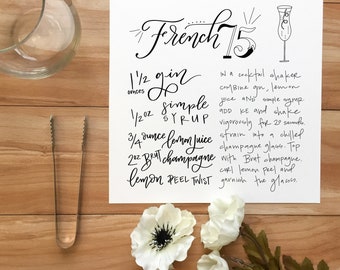 French 75
1 1/2 gin
ounces
1/2 oz simple
SYRUP
3/4 ounce lemon juice
2 oz BRUT champagne
lemon PEEL TWIST
IN a cocktail shaker
combine gin, lemon
juice AND simple syrup.
ADD ice and shake
vigorously for 20 seconds.
Strain into a chilled
champagne glass. Top
with Brut champagne.
curl lemon peel and
garnish the glass.